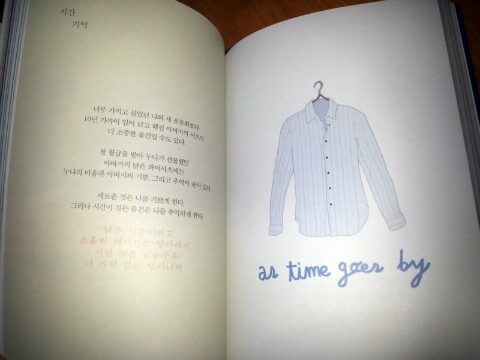 시간
기억
너무 가지고 싶었던 나의 새 운동화보다
10년 가까이 입어 낡고 해진 아버지의 셔츠가
더 소중한 물건일 수도 있다.
첫 월급을 받아 누나가 선물했던
아버지의 낡은 와이셔츠에는
누나의 마음과 아버지의 기쁨, 그리고 추억이 묻어 있다.
새로운 것은 나를 기쁘게 한다.
그러나 시간이 깃든 물건은 나를 추억하게 한다.
낡은 것들이라고
소홀히 여기지는 말아야지
어떤 것은 낡을수록
더 가치 있는 법이니까
as time goes by